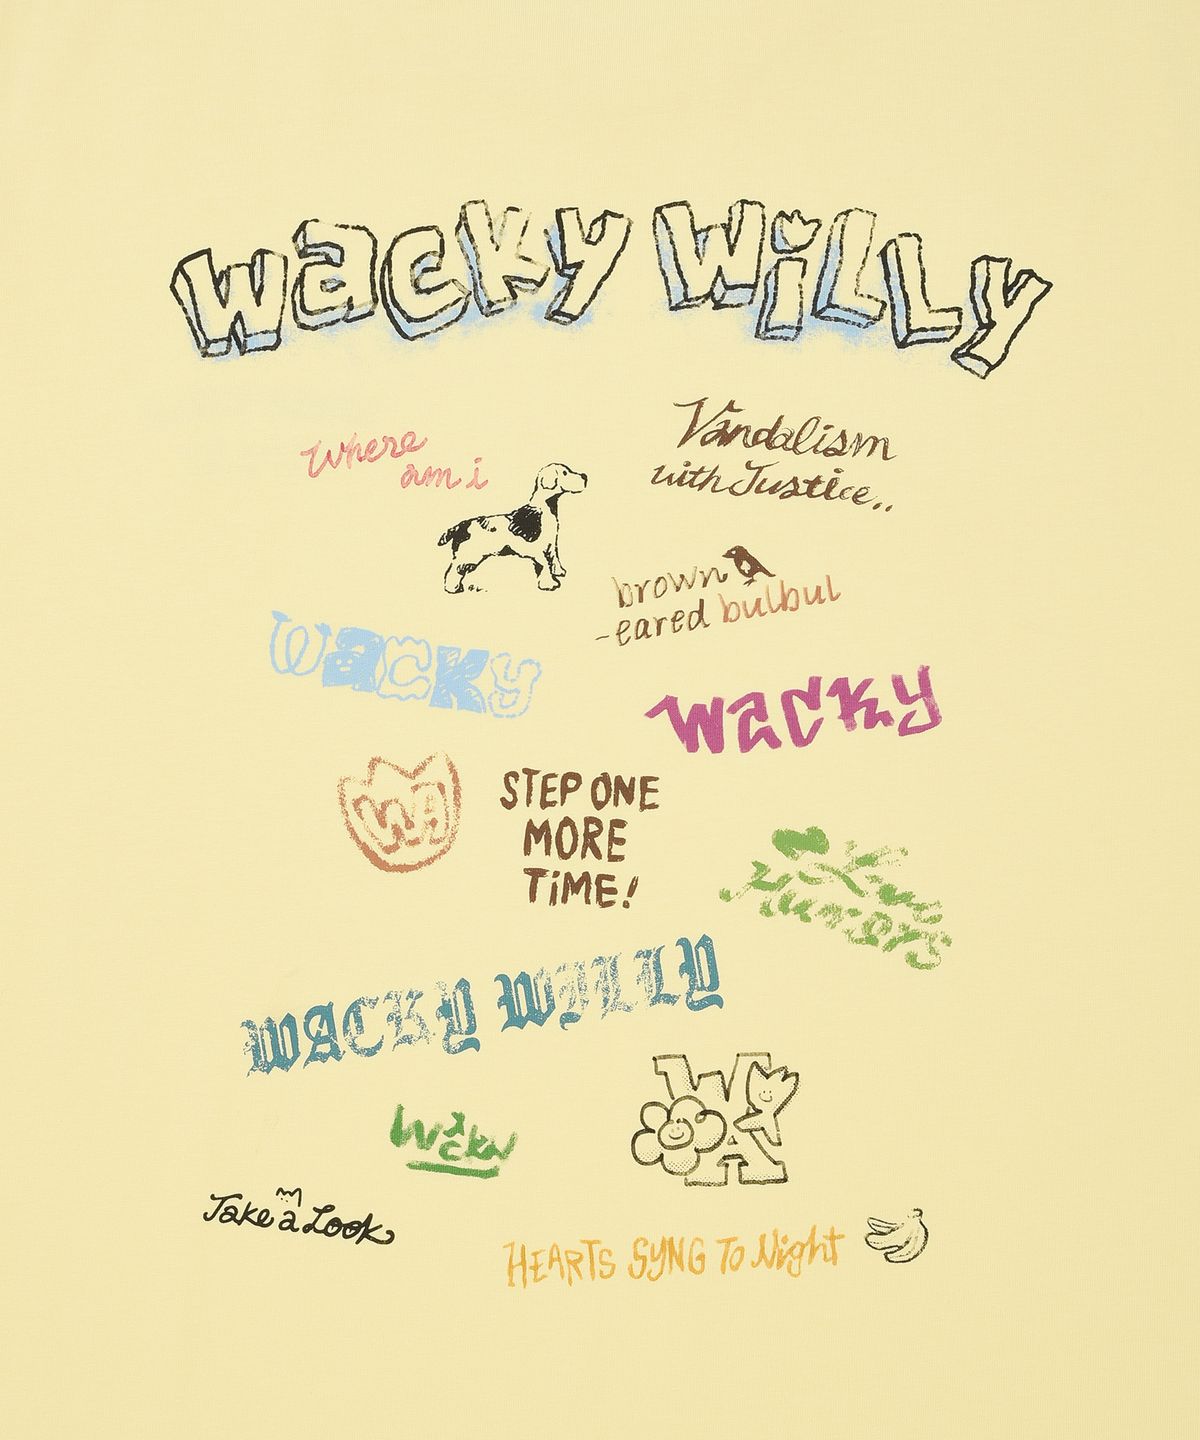 wacky willy
Where
am i
Vandalism
with Justice..
brown
-eared bulbul
wacky
wacky
WA
STEP ONE
MORE
TiME!
WACKY WILLY
wacky
WA
Take a Look
HEARTS SYNG To Night